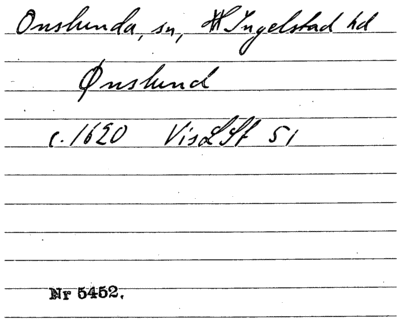 Onslunda, sn, Ingelstad hd
Ønslund
c. 1620 VisLSt 51
Nr 5452.